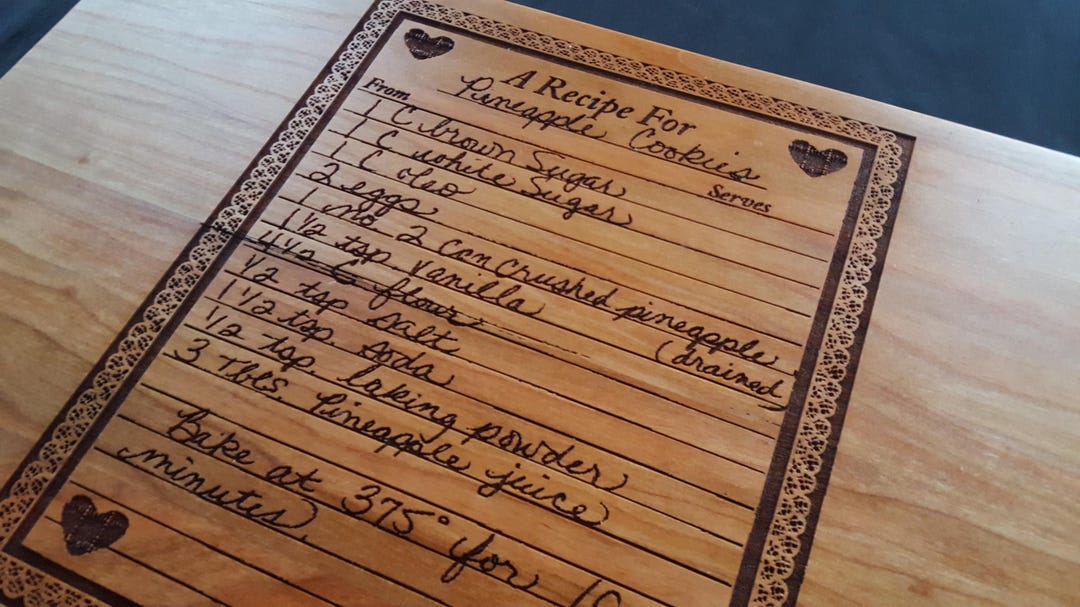 A Recipe For
Pineapple Cookies
From
Serves
1 C brown Sugar
1 C white Sugar
1 C oleo
2 eggs
1 no 2 can crushed pineapple
(drained)
1 1/2 tsp vanilla
4 1/2 C flour
1/2 tsp salt
1 1/2 tsp soda
1/2 tsp baking powder
3 Tbls. Pineapple juice
Bake at 375° for
minutes